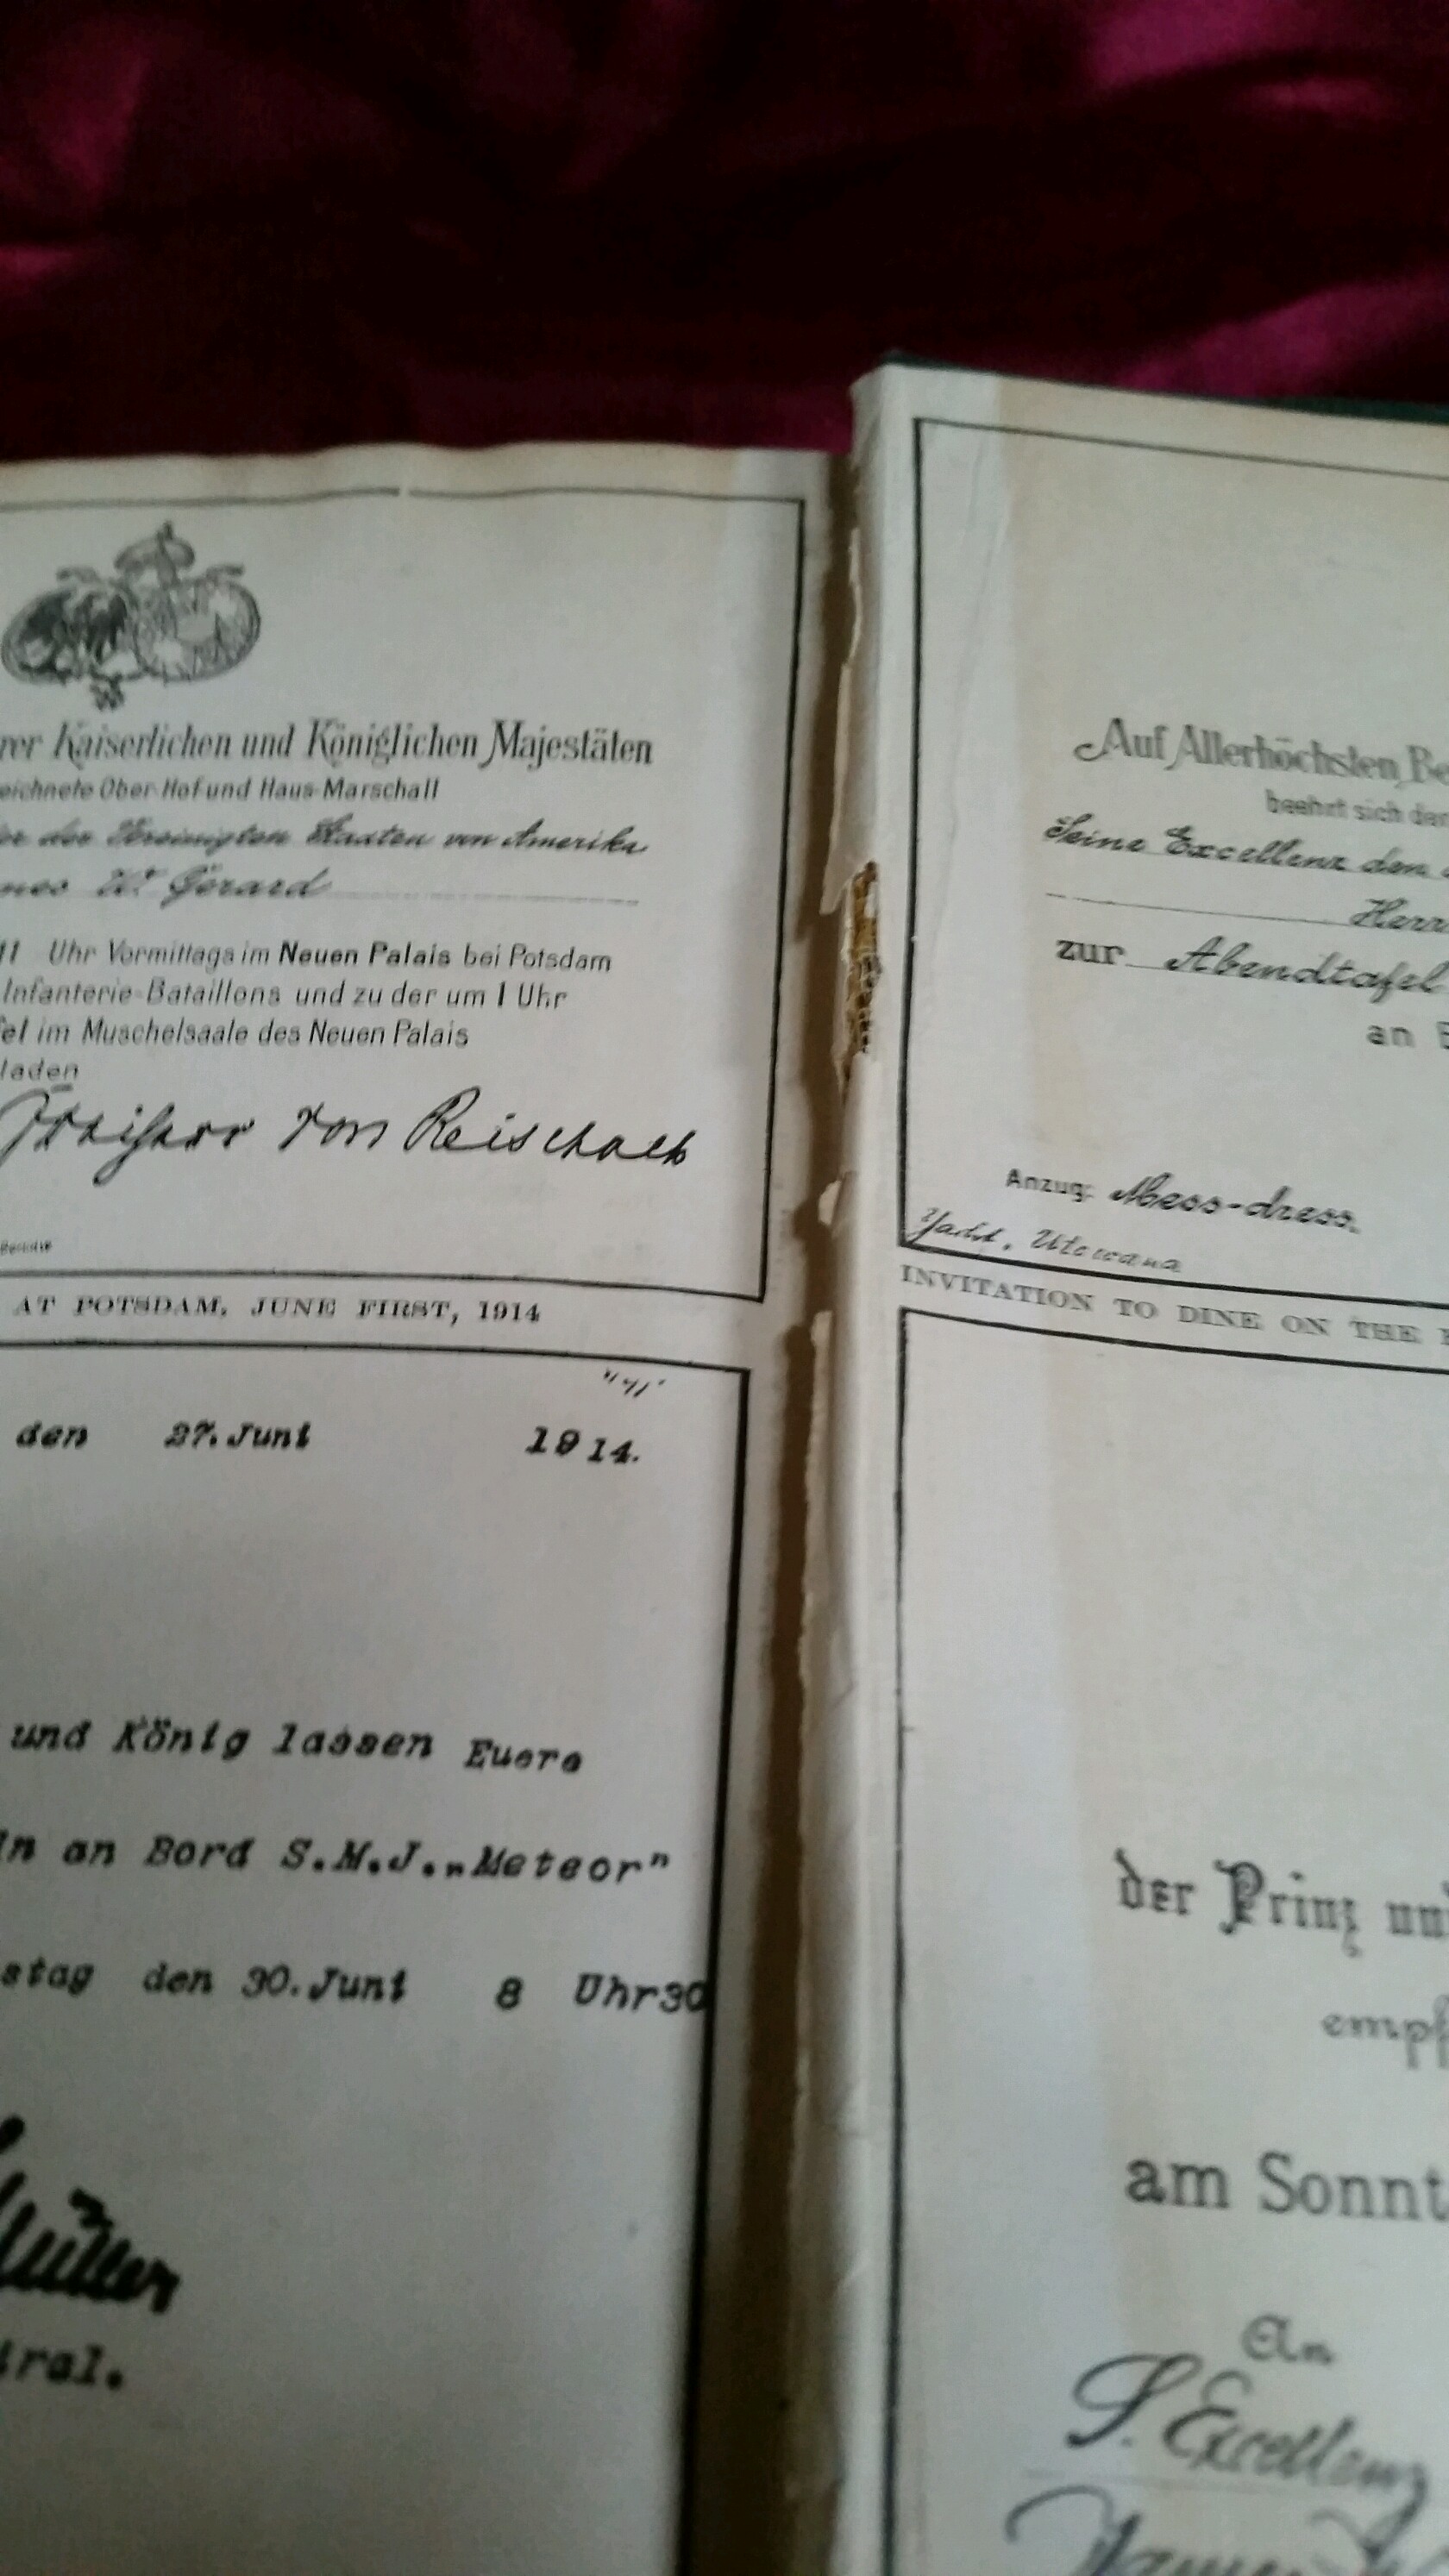 rer Kaiserlichen und Königlichen Majestäten
eichnete Ober-Hof und Haus-Marschall
der Vereinigten Staaten von Amerika
mes W. Gerard
11 Uhr Vormittags im Neuen Palais bei Potsdam
Infanterie-Bataillons und zu der um 1 Uhr
fel im Muschelsaale des Neuen Palais
laden
Freiherr von Reischach
AT POTSDAM, JUNE FIRST, 1914
den 27. Juni 1914.
und König lassen Euere
an Bord S.M.J. „Meteor"
stag den 30. Juni 8 Uhr30
Müller
iral.
Auf Allerhöchsten Be
beehrt sich der
Seine Excellenz den
Herr
zur Abendtafel
an B
Anzug: Mess-dress.
Yacht, Utowana
INVITATION TO DINE ON THE
der Prinz und
empf
am Sonnt
An
S. Excellenz